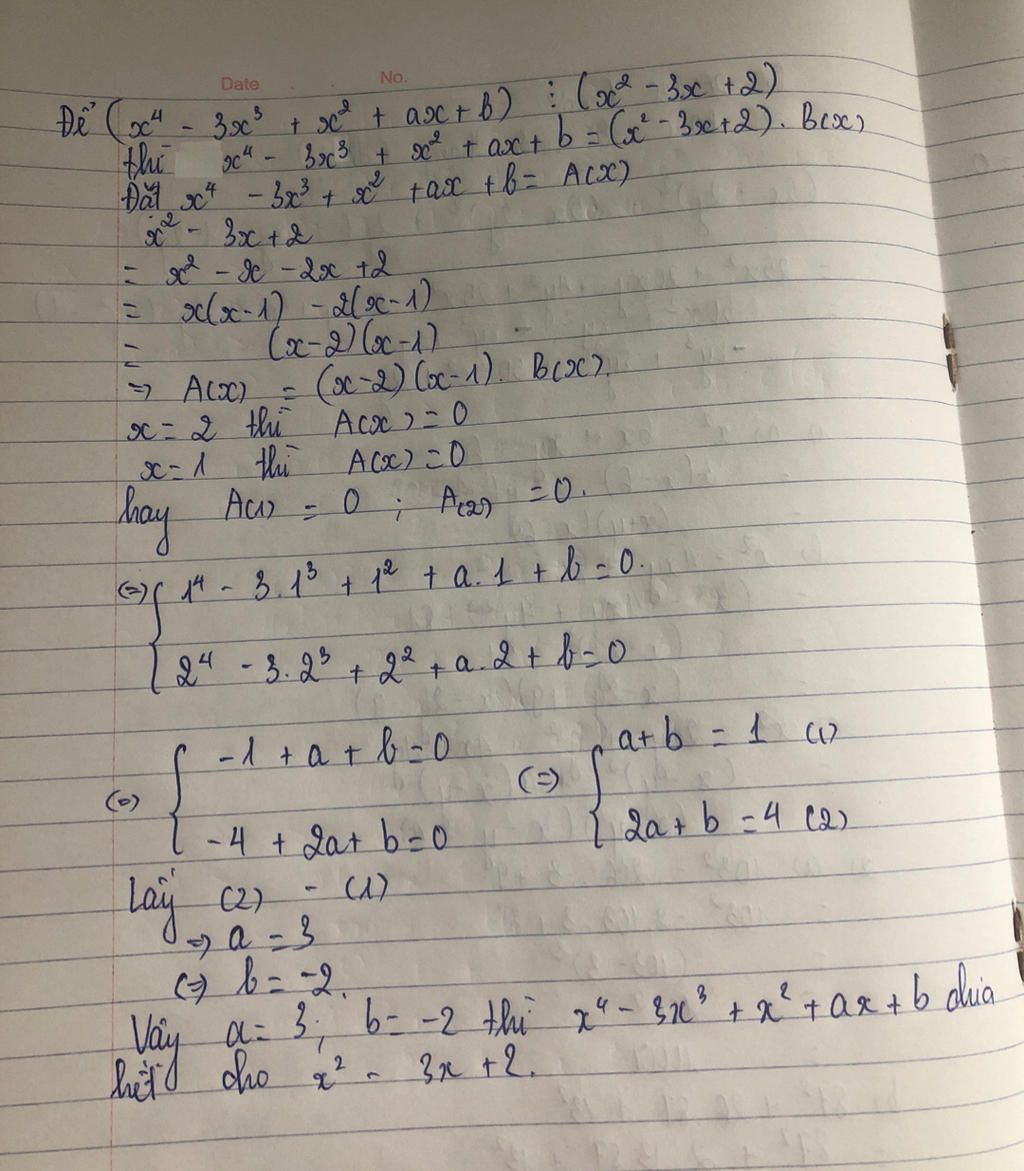 Date . . No.
Để (x⁴ - 3x³ + x² + ax + b) ⋮ (x² - 3x + 2)
thì x⁴ - 3x³ + x² + ax + b = (x² - 3x + 2). B(x)
Đặt x⁴ - 3x³ + x² + ax + b = A(x)
x² - 3x + 2
= x² - x - 2x + 2
= x(x-1) - 2(x-1)
= (x-2)(x-1)
=> A(x) = (x-2)(x-1). B(x).
x = 2 thì A(x) = 0
x = 1 thì A(x) = 0
hay A(1) = 0 ; A(2) = 0.
<=> { 1⁴ - 3.1³ + 1² + a.1 + b = 0.
2⁴ - 3.2³ + 2² + a.2 + b = 0
<=> { -1 + a + b = 0 <=> { a + b = 1 (1)
-4 + 2a + b = 0 2a + b = 4 (2)
Lấy (2) - (1)
=> a = 3
<=> b = -2.
Vậy a = 3; b = -2 thì x⁴ - 3x³ + x² + ax + b chia
hết cho x² - 3x + 2.